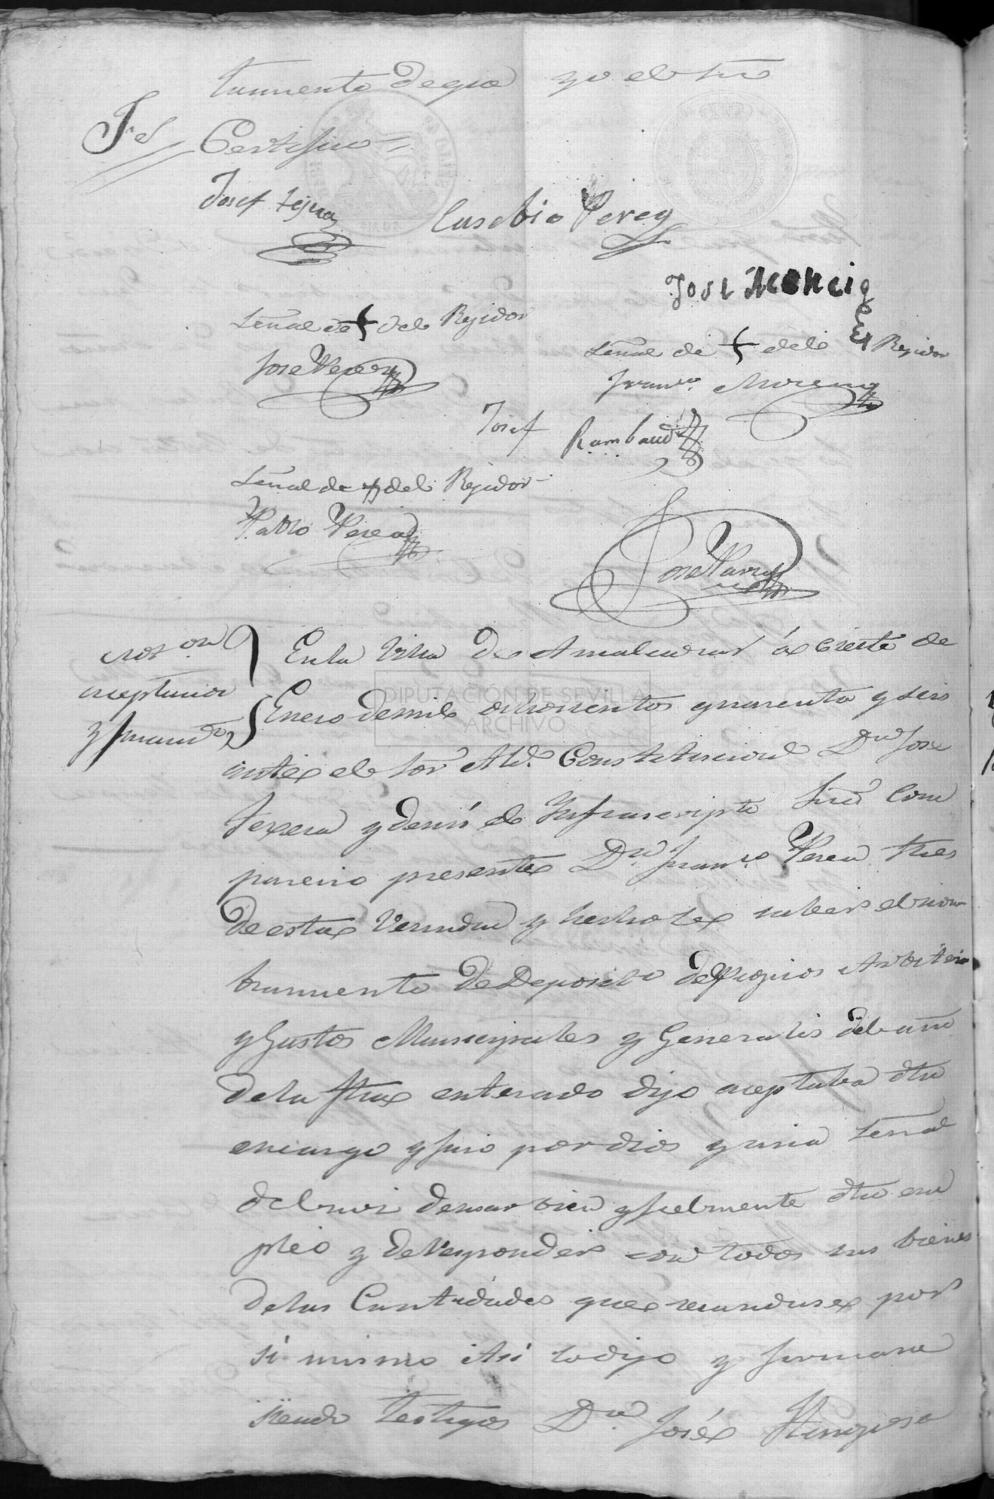 tamiento de que yo el Srio
Certifico =
Josef Tejera
Eusebio Perez
José Moncig
Señal de + del Rejidor
Jose Perea
Señal de + del Rejidor
Franco Moreno
Josef Rambaud
Señal de + del Rejidor
Pablo Perea
Jose Parra
Not.on
aceptacion
y juramto
En la Villa de Amalcazar á siete de
Enero de mil ochocientos quarenta y seis
ante el Sor Ald. Constitucional Dn Jose
Texera y demi el Infrascripto Srio Com
parecio presente Dn Franco Perea
de esta Vecindad y hechole saber el nom
bramiento de Deposito de Propios Arbitrios
y Gastos Municipales y Generales del año
de la fha enterado dijo aceptaba dho
encargo y juro por dios y una señal
de Cruz de usar bien y fielmente dho em
pleo y de responder con todos sus bienes
de las Cantidades que recaudase por
si mismo Asi lo dijo y firmara
siendo testigos Dn José
DIPUTACIÓN DE SEVILLA
ARCHIVO